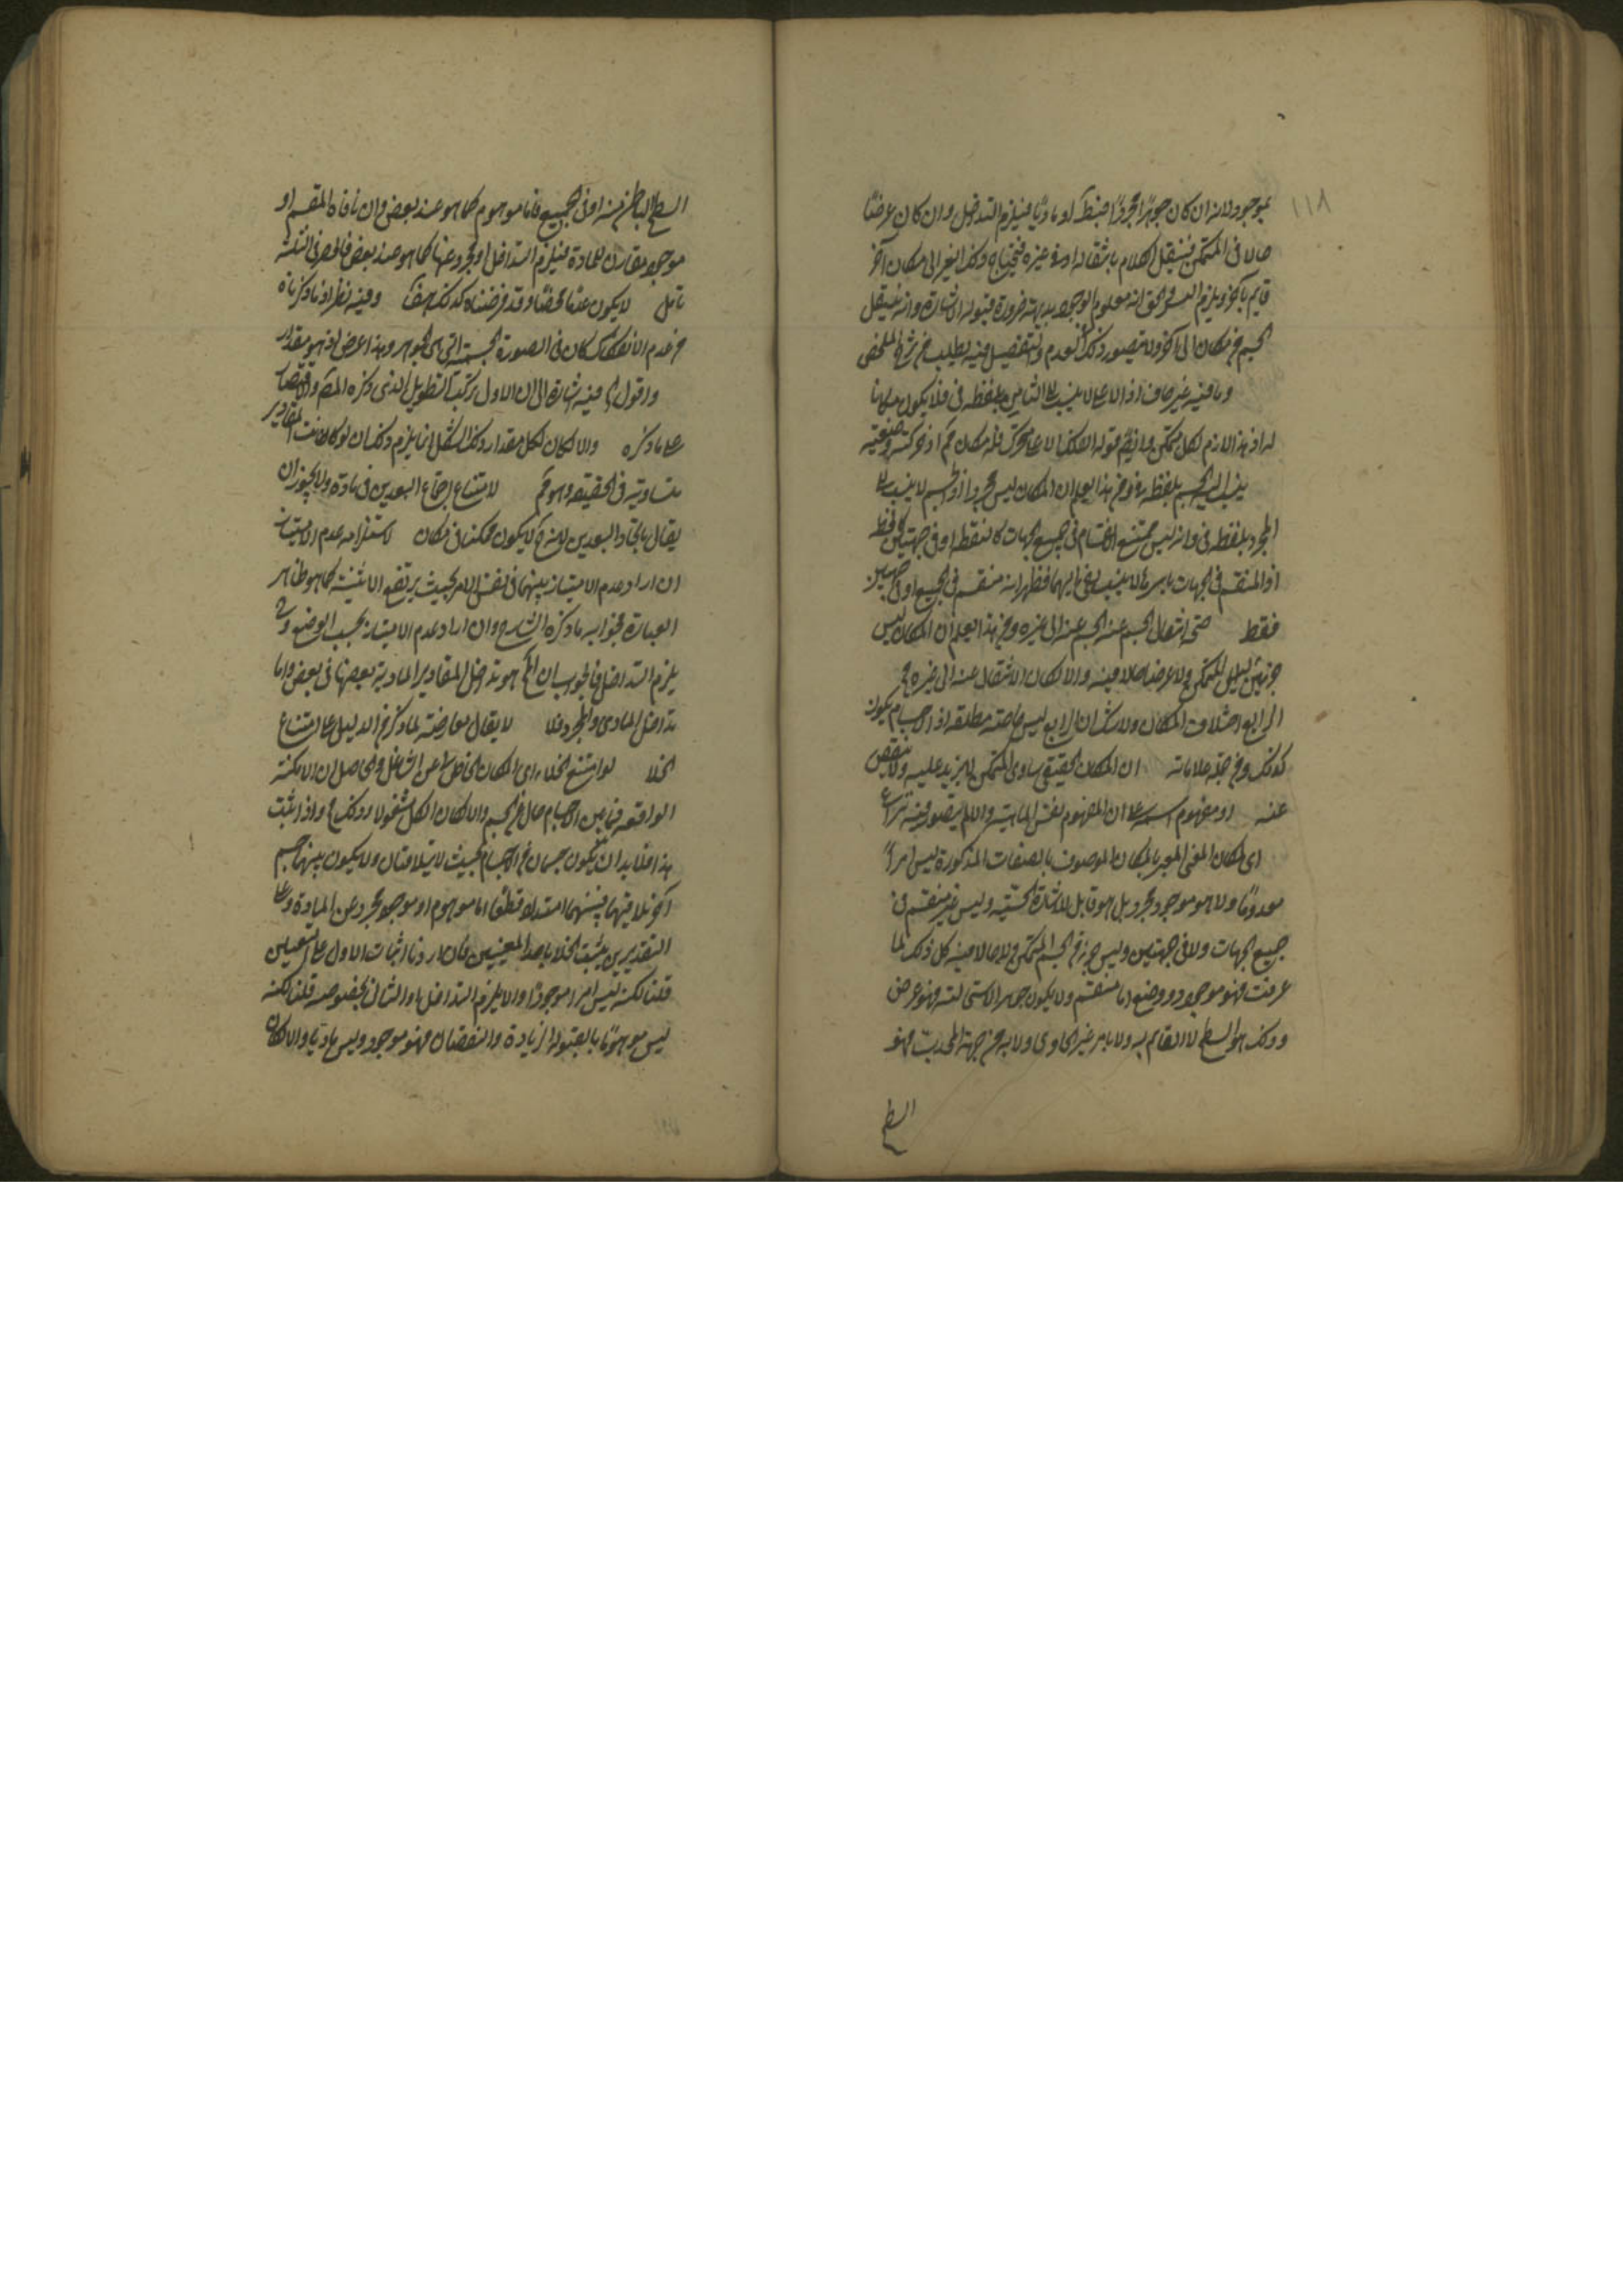 ١١٨
بموجود لانه ان كان جوهرا مجردا اضبطه او ماديا فيلزم التداخل وان كان عرضا
حالا في المتمكن فينتقل الكلام بانتقاله او في غيره فيحتاج وكذا الغير الى مكان آخر
قايم بآخر ويلزم التس والحق انه معلوم الوجود بديهة ضرورة قبوله الاشارة وانه ينتقل
الجسم من مكان الى آخر ولا يتصور ذلك في العدم والتفصيل فيه يطلب من شرح الملخص
وما فيه غير صاف اذ الاعلى لا ينسب الى الثامن بلفظه في فلا يكون مكانا
ينسب اليه الجسم بلفظة في ومن هذا يعلم ان المكان ليس مجردا اذ الجسم لا ينسب الى
المجرد بلفظه في وانه ليس ممتنع الانقسام في جميع الجهات كالنقطه او في جهتين كالخط
اذ المنقسم في الجهات باسرها لا ينسب بفي اليهما فظهر انه منقسم في الجميع او في جهتين
فقط صح انتقال الجسم عنه الجسم عنه الى غيره ومن هذا يعلم ان المكان ليس
جزء من المتمكن ولا عرضا حالا فيه والا لكان الانتقال عنه الى غيره مح
الرابع اختلاف المكان ولا شك ان الرابع ليس خاصة مطلقه اذ الاجسام يكون
كذلك ومن جملة علاماته ان المكان الحقيقي يساوي المتمكن لا يزيد عليه ولا ينقص
عنه او مفهوم اسمه على ان المفهوم نفس الماهية والا لم يتصور فيه نزاع
اي المكان المعنى المعبر بالمكان الموصوف بالصفات المذكورة ليس امرا
معدوما ولا هو موجود مجرد بل هو قابل للاشارة الحسية وليس غير منقسم في
جميع الجهات ولا في جهتين وليس جزء من الجسم المتمكن ولا حالا فيه كل ذلك لما
عرفت فهو موجود ذو وضع اما منقسم ولا يكون جوهرا لاستحالته فهو عرض
وذلك هو السطح لا القايم به ولا بامر غير الحاوي ولا به من جهة المحدب فهو
السطح
السطح الباطن منه او في الجميع فاما موهوم كما هو عند بعض وان نافاه المقسم او
موجود مقارن للمادة فيلزم التداخل او مجرد عنها كما هو عند بعض فانحصر في الثلثة
تأمل لا يكون عدما محضا وقد فرضناه كذلك هف وفيه نظر اذ ما ذكرناه
من عدم الانفكاك كان في الصورة الجسمية التي هي الجوهر وهذا عرض اذ هو مقدار
واقول فيه اشارة الى ان الاول ترك التطويل الذي ذكره المص والاقتصار
على ما ذكره والا لكان لكل مقدار ذلك الشكل انما يلزم ذلك ان لو كانت المقادير
متساوية في الحقيقة وهو مم لامتناع اجتماع البعدين في مادة ولا يجوز ان
يقال باتحاد البعدين لانه ح لا يكون ممكنا في مكان لاستلزامه عدم الامتياز
ان اراد عدم الامتياز بينهما في نفس الامر بحيث يرتفع الاثنينية كما هو ظاهر
العبارة فجوابه ما ذكره الشارح وان اراد عدم الامتياز بحسب الوضع و
يلزم التداخل فالجواب ان المح هو تداخل المقادير المادية بعضها في بعض واما
تداخل المادي والمجرد فلا لا يقال معارضة لما ذكر من الدليل على امتناع
الخلا لو امتنع الخلاء اي المكان الخالي عن الشاغل والحاصل ان الامكنة
الواقعه فيما بين الاجسام خال عن الجسم والا لكان الكل مشغولا وذلك مح واذا ثبت
هذا فلا بد ان يكون جسمان من الاجسام بحيث لا يتلاقيان ولا يكون بينهما جسم
آخر يلاقيهما فبينهما امتداد قطعا اما موهوم او موجود مجرد عن المادة وعلى
التقديرين يثبت الخلا باحد المعنيين فان اردنا اثبات الاول على التعيين
قلنا لكنه ليس امرا موجودا والا يلزم التداخل او الثاني بخصوصه قلنا لكنه
ليس موهوما بالقبوله الزيادة والنقصان فهو موجود وليس ماديا والا لكان